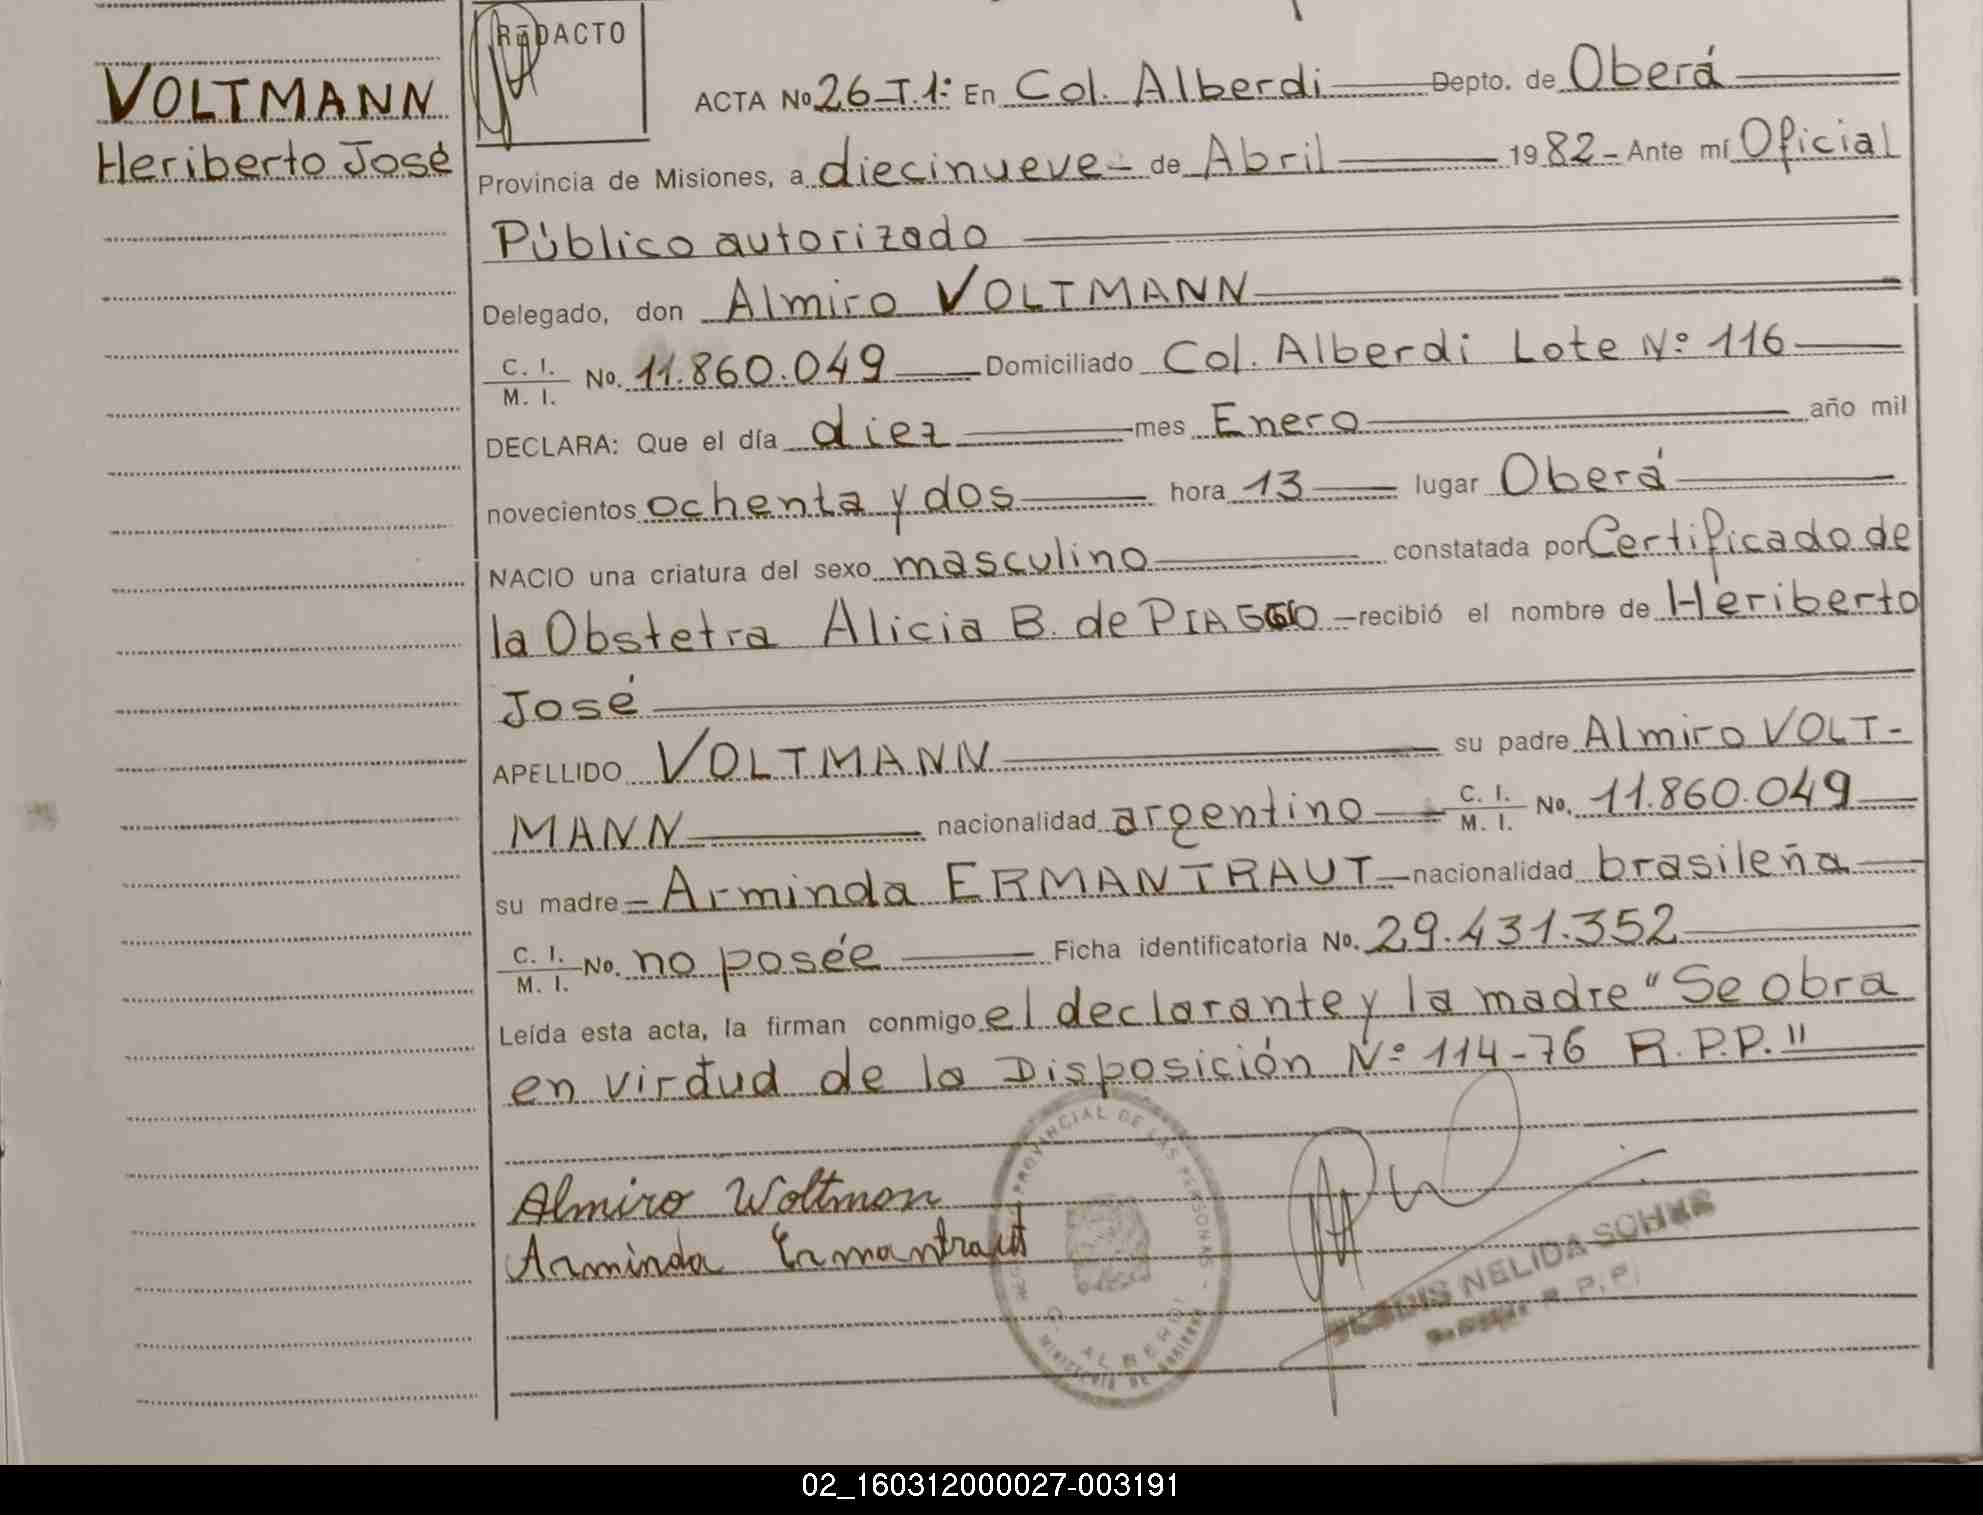 REDACTO
VOLTMANN
Heriberto José
ACTA No 26-T.1: En Col. Alberdi Depto. de Oberá
Provincia de Misiones, a diecinueve de Abril 1982 - Ante mí Oficial
Público autorizado
Delegado, don Almiro VOLTMANN
C. I. / M. I. No. 11.860.049 Domiciliado Col. Alberdi Lote Nº 116
DECLARA: Que el día diez mes Enero año mil
novecientos ochenta y dos hora 13 lugar Oberá
NACIO una criatura del sexo masculino constatada por Certificado de
la Obstetra Alicia B. de PIAGGIO recibió el nombre de Heriberto
José
APELLIDO VOLTMANN su padre Almiro VOLT-
MANN nacionalidad argentino C. I. / M. I. No. 11.860.049
su madre Arminda ERMANTRAUT nacionalidad brasileña
C. I. / M. I. No. no posée Ficha identificatoria No. 29.431.352
Leída esta acta, la firman conmigo el declarante y la madre "Se obra
en virtud de la Disposición Nº 114-76 R.P.P."
Almiro Woltmon
Arminda Ermantraut
PROVINCIAL DE LAS PERSONAS
NELIDA
R. P. P.
02_160312000027-003191